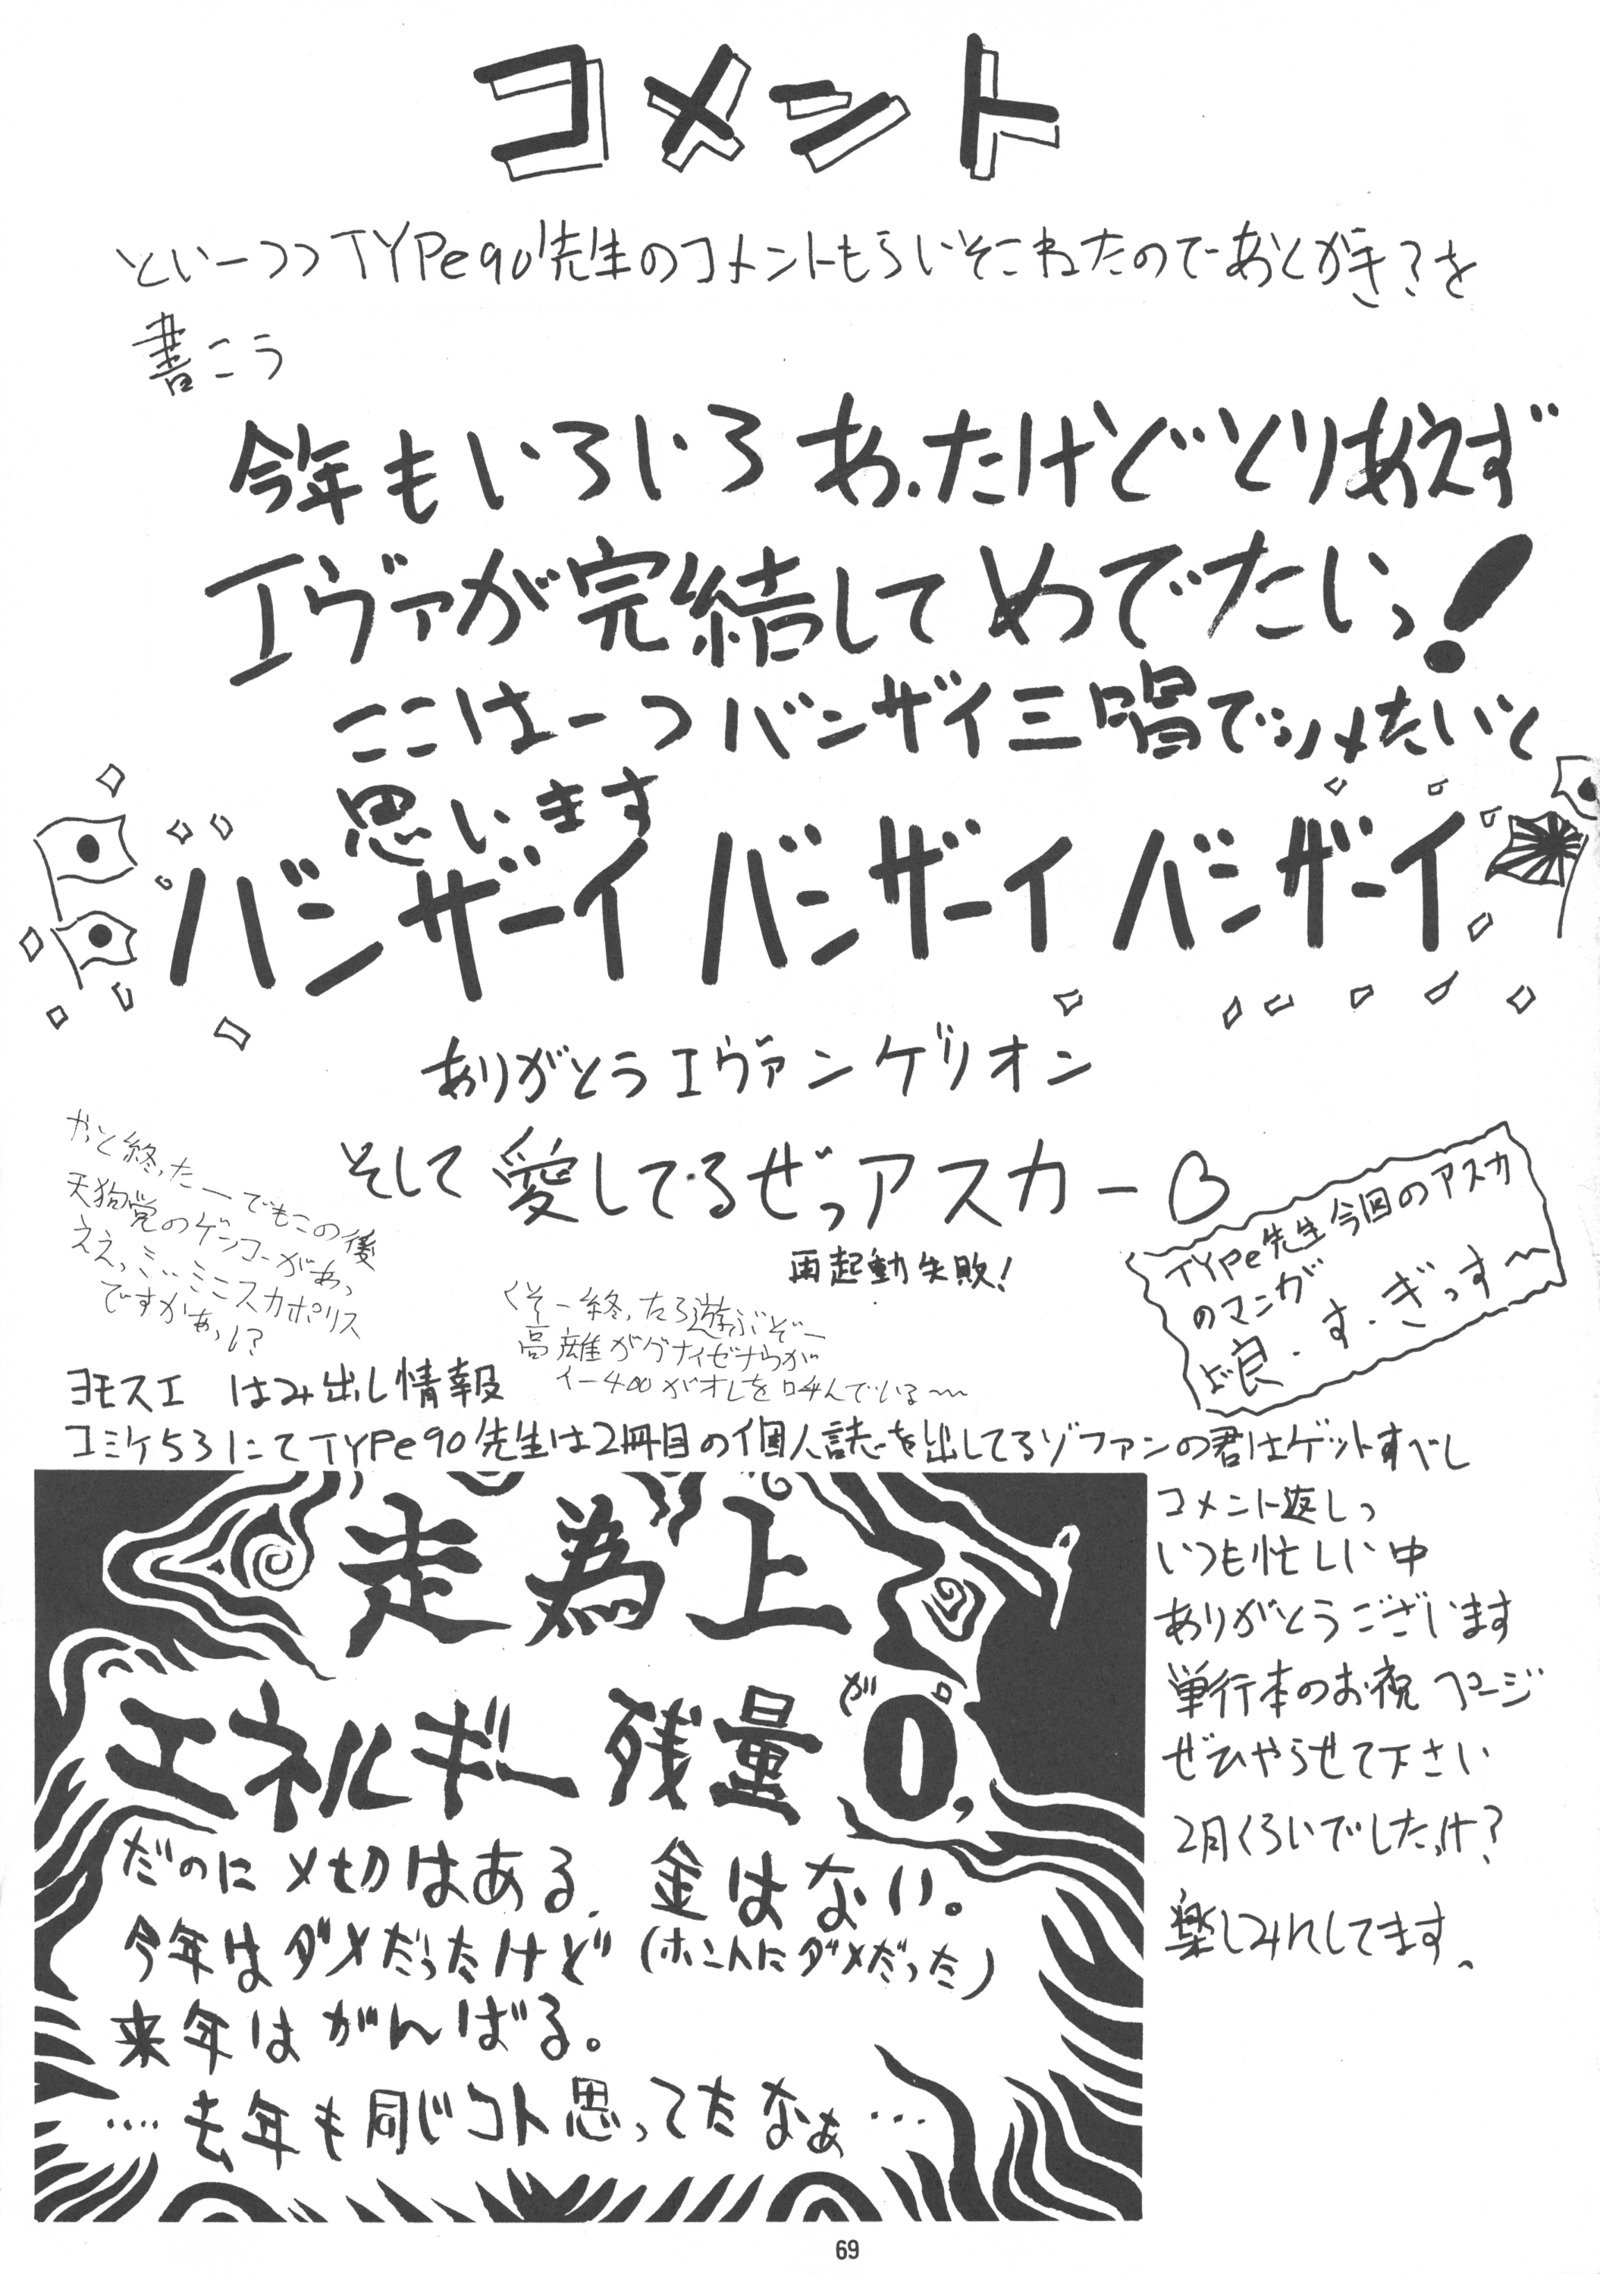 コメント
といーつつTYPe90先生のコメントもらいそこねたのであとがき?を
書こう
今年もいろいろあったけどとりあえず
エヴァが完結してめでたいっ!
ここは一つバンザイ三唱でシメたいと
思います
バンザーイ バンザーイ バンザーイ
ありがとうエヴァンゲリオン
そして愛してるぜっアスカー
再起動失敗!
やっと終ったーでもこの後
天狗党のゲンコーがあっ
ええっミニミニスカポリス
ですかぁっ!?
くそー終ったら遊ぶぞー
イー400がオレを呼んでいる〜
TYPe先生今回のアスカ
のマンガ
良・す・ぎっす〜
ヨモスエ はみ出し情報
コミケ53にてTYPe90先生は2冊目の個人誌を出してるゾファンの君はゲットすべし
走為上
エネルギー残量が0。
だのに〆切はある。金はない。
今年はダメだったけど(ホントにダメだった)
来年はがんばる。
…去年も同じコト思ってたなぁ…
コメント返しっ
いつも忙しい中
ありがとうございます
単行本のお祝ページ
ぜひやらせて下さい
2月くらいでしたっけ?
楽しみにしてます、
69